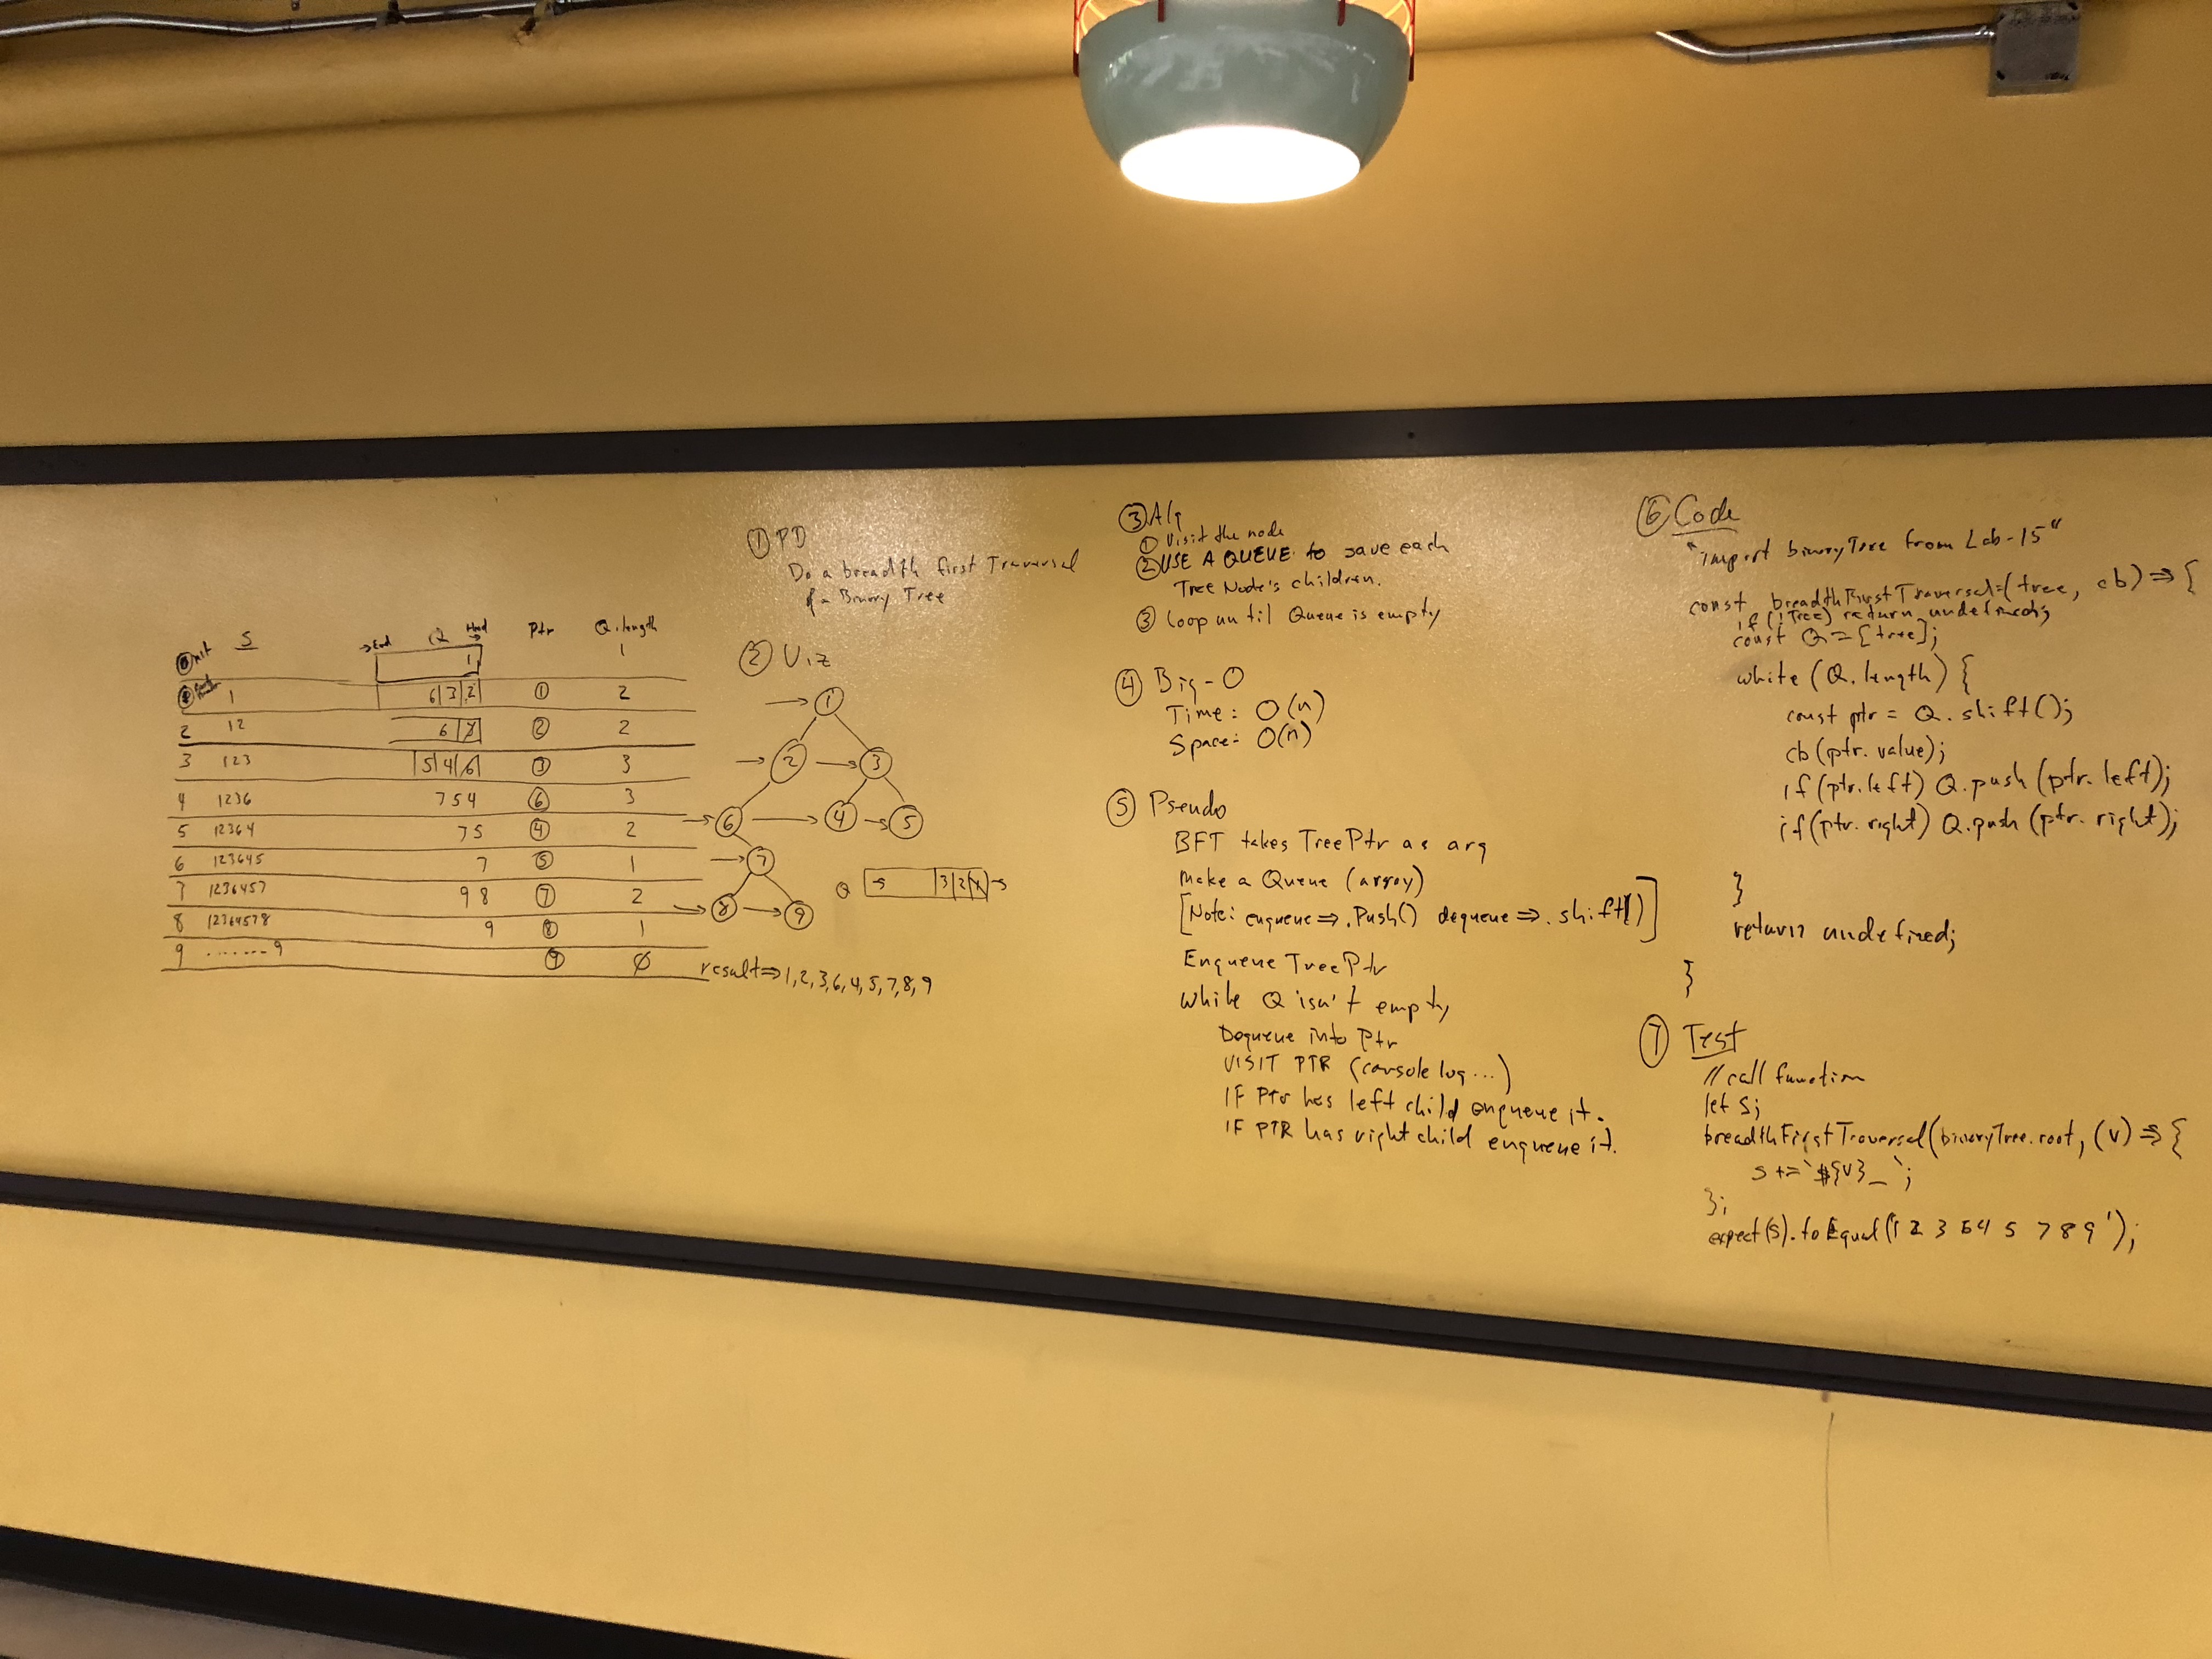 S →End Q Head Ptr Q.length
Init 1 1
1 6|3|2| ① 2
2 12 6|3| ② 2
3 123 |5|4|6| ③ 3
4 1236 7 5 4 ⑥ 3
5 12364 7 5 ④ 2
6 123645 7 ⑤ 1
7 1236457 9 8 ⑦ 2
8 12364578 9 ⑧ 1
9 .......9 ⑨ Ø
① PD
Do a breadth first Traversal
of a Binary Tree
② Viz
→ ①
→ ② → ③
→ ⑥ → ④ → ⑤
→ ⑦
→ ⑧ → ⑨
Q → |3|2|1| →
result⇒1,2,3,6,4,5,7,8,9
③ Alg
① Visit the node
② USE A QUEUE to save each
Tree Node's children.
③ Loop until Queue is empty
④ Big-O
Time: O(n)
Space: O(n)
⑤ Pseudo
BFT takes TreePtr as arg
Make a Queue (array)
[Note: enqueue⇒.Push() dequeue⇒.shift()]
Enqueue TreePtr
While Q isn't empty
Dequeue into Ptr
VISIT PTR (console log...)
IF Ptr has left child enqueue it.
IF PTR has right child enqueue it.
⑥ Code
"import binaryTree from Lab-15"
const breadthFirstTraversal=(tree, cb)⇒{
if (!Tree) return undefined;
const Q=[tree];
while (Q.length) {
const ptr = Q.shift();
cb(ptr.value);
if(ptr.left) Q.push(ptr.left);
if(ptr.right) Q.push(ptr.right);
}
return undefined;
}
⑦ Test
// call function
let S;
breadthFirstTraversal(binaryTree.root, (v)⇒{
s+=`${v}_`;
};
expect(s).toEqual('1 2 3 6 4 5 7 8 9');